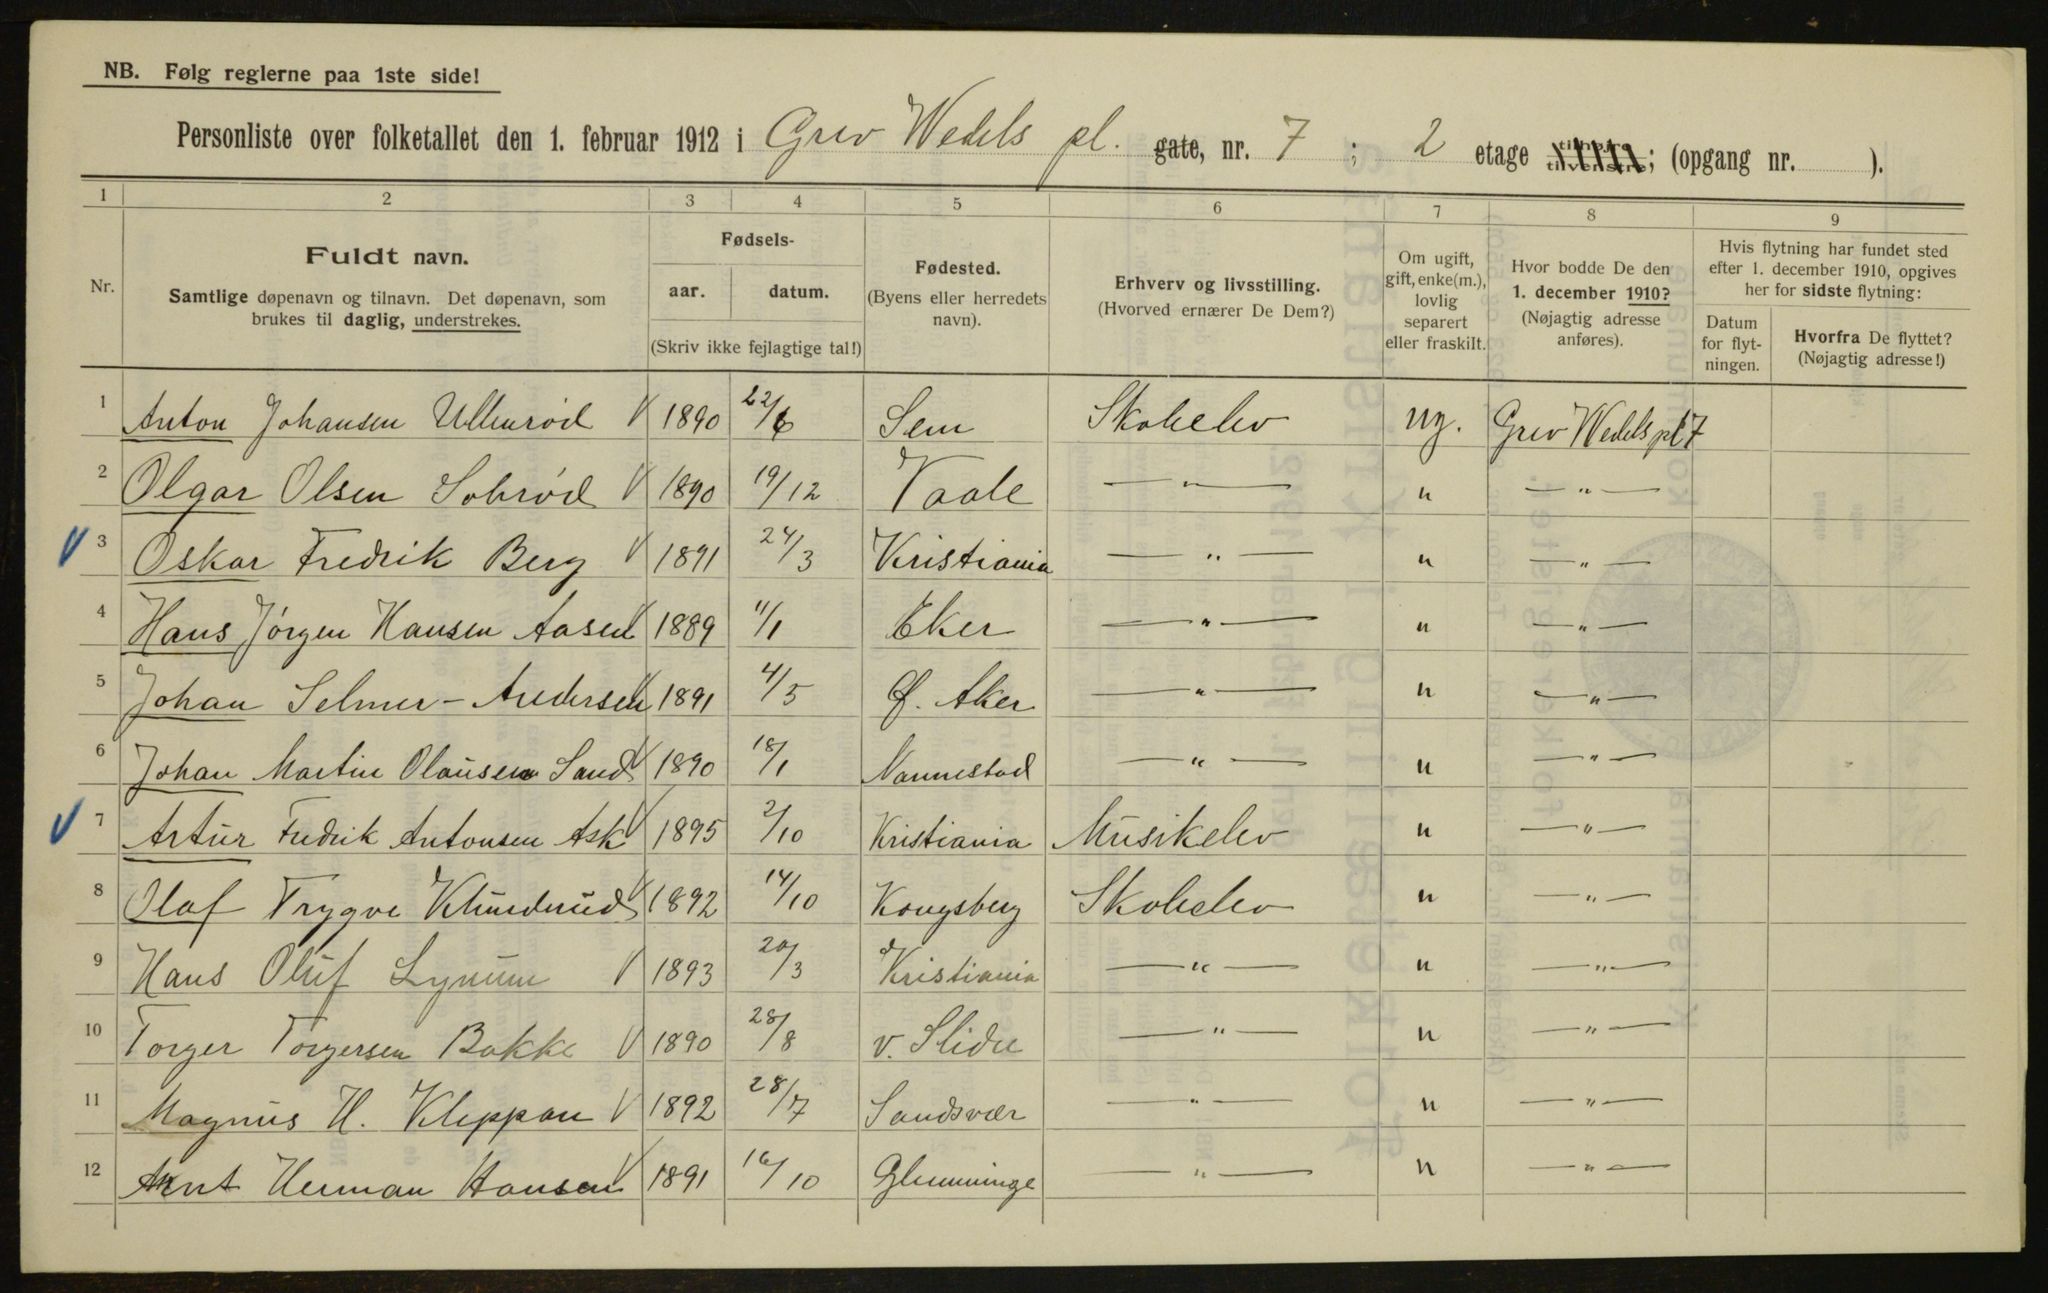 NB. Følg reglerne paa 1ste side!
Personliste over folketallet den 1. februar 1912 i Grev Wedels pl. gate, nr. 7 ; 2 etage tilhøjre tilvenstre; (opgang nr. ).
1 2 3 4 5 6 7 8 9
Nr.
Fuldt navn.
Samtlige døpenavn og tilnavn. Det døpenavn, som
brukes til daglig, understrekes.
Fødsels-
aar. datum.
(Skriv ikke fejlagtige tal!)
Fødested.
(Byens eller herredets
navn).
Erhverv og livsstilling.
(Hvorved ernærer De Dem?)
Om ugift,
gift, enke(m.),
lovlig
separert
eller fraskilt.
Hvor bodde De den
1. december 1910?
(Nøjagtig adresse
anføres).
Hvis flytning har fundet sted
efter 1. december 1910, opgives
her for sidste flytning:
Datum
for flyt-
ningen.
Hvorfra De flyttet?
(Nøjagtig adresse!)
1 Anton Johansen Ullenrød V 1890 22/6 Sem Skoleelev ug. Grev Wedels pl 7
2 Olgar Olsen Solrød V 1890 19/12 Vaale — " — " — " —
V 3 Oskar Fredrik Berg V 1891 24/3 Kristiania — " — " — " —
4 Hans Jörgen Hansen Aasen V 1889 11/1 Eker — " — " — " —
5 Johan Selmer-Andersen V 1891 4/5 Ø. Aker — " — " — " —
6 Johan Martin Olausen Sand V 1890 18/1 Nannestad — " — " — " —
V 7 Artur Fredrik Antonsen Ask V 1895 2/10 Kristiania Musikelev " — " —
8 Olaf Trygve Klunderud V 1892 14/10 Kongsberg Skoleelev " — " —
9 Hans Oluf Lynum V 1893 20/3 Kristiania — " — " — " —
10 Torger Torgersen Bakke V 1890 28/8 v. Slidre — " — " — " —
11 Magnus H. Kleppan V 1892 28/7 Sandsvær — " — " — " —
12 Arnt Herman Hansen V 1891 16/10 Glemminge — " — " — " —